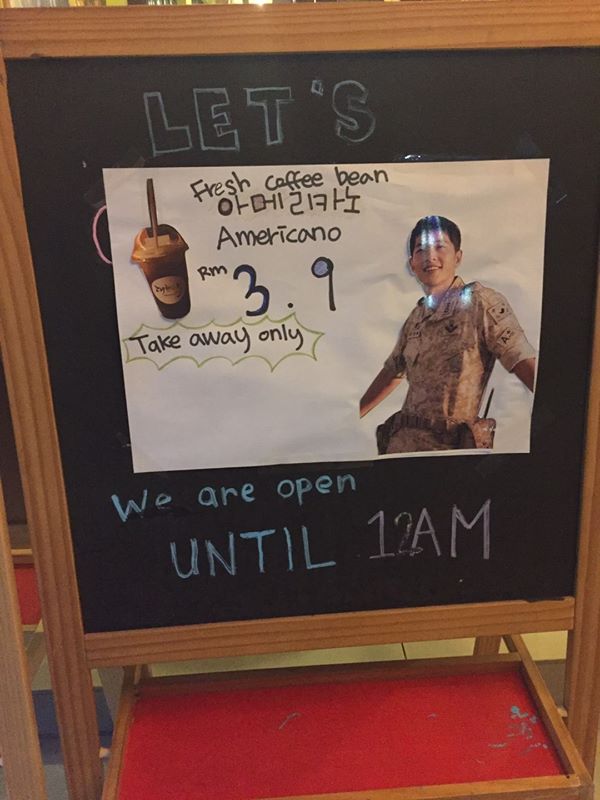 LET'S
Fresh coffee bean
아메리카노
Americano
RM 3.9
Take away only
We are open
UNTIL 12AM